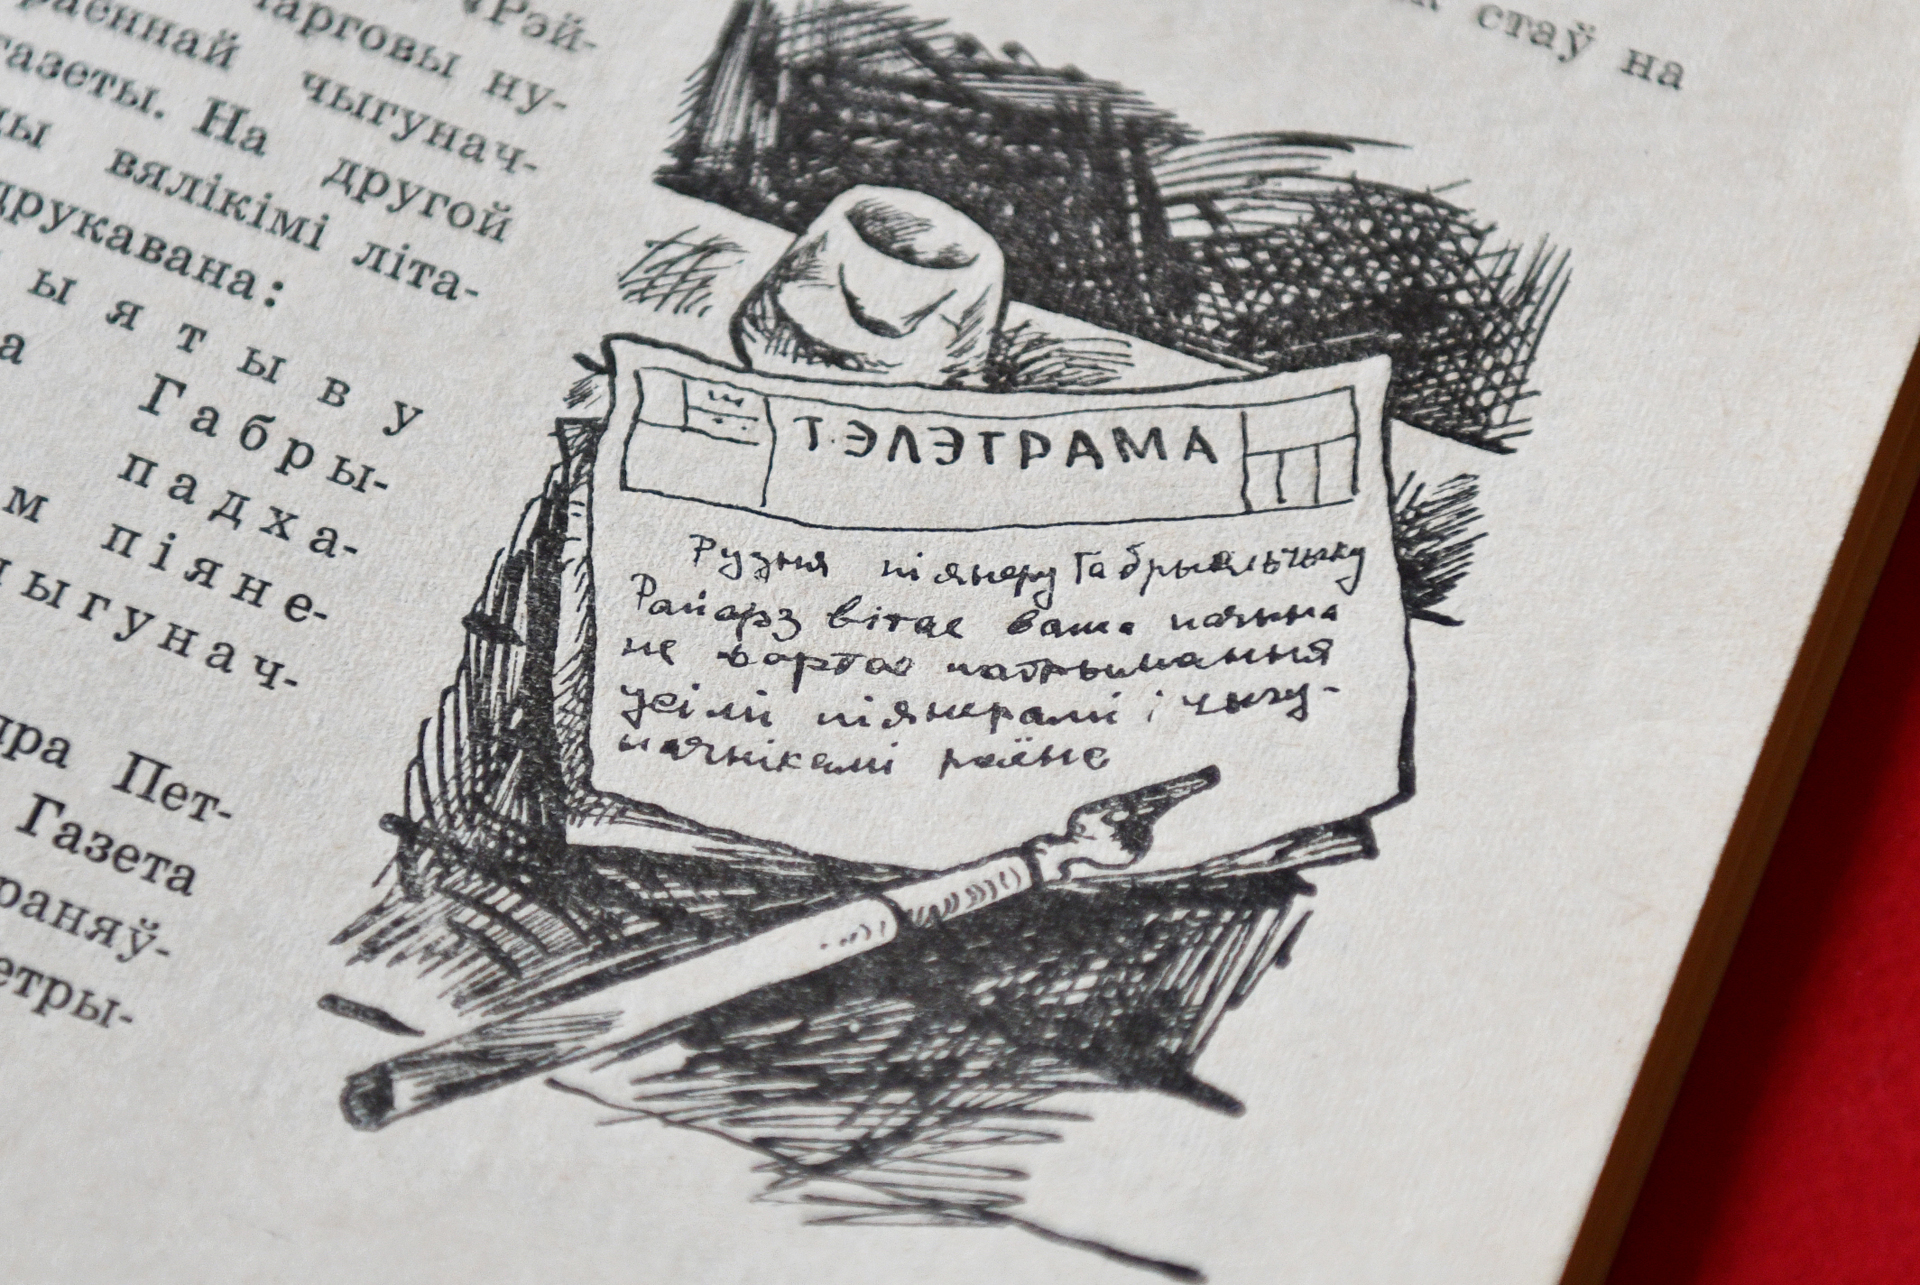 «Рэй-
чарговы ну-
раённай чыгунач-
газеты. На другой
вялікімі літа-
друкавана:
ыятыву
а Габры-
падха-
м піяне-
чыгунач-
Пет-
Газета
раняў-
етры-
стаў на
ТЭЛЭГРАМА
Рузня піянеру Габрыяльчыку
Райорз вітае ваша пачына
не варта патрымання
усімі піянерамі і чыгу-
начнікамі раёна